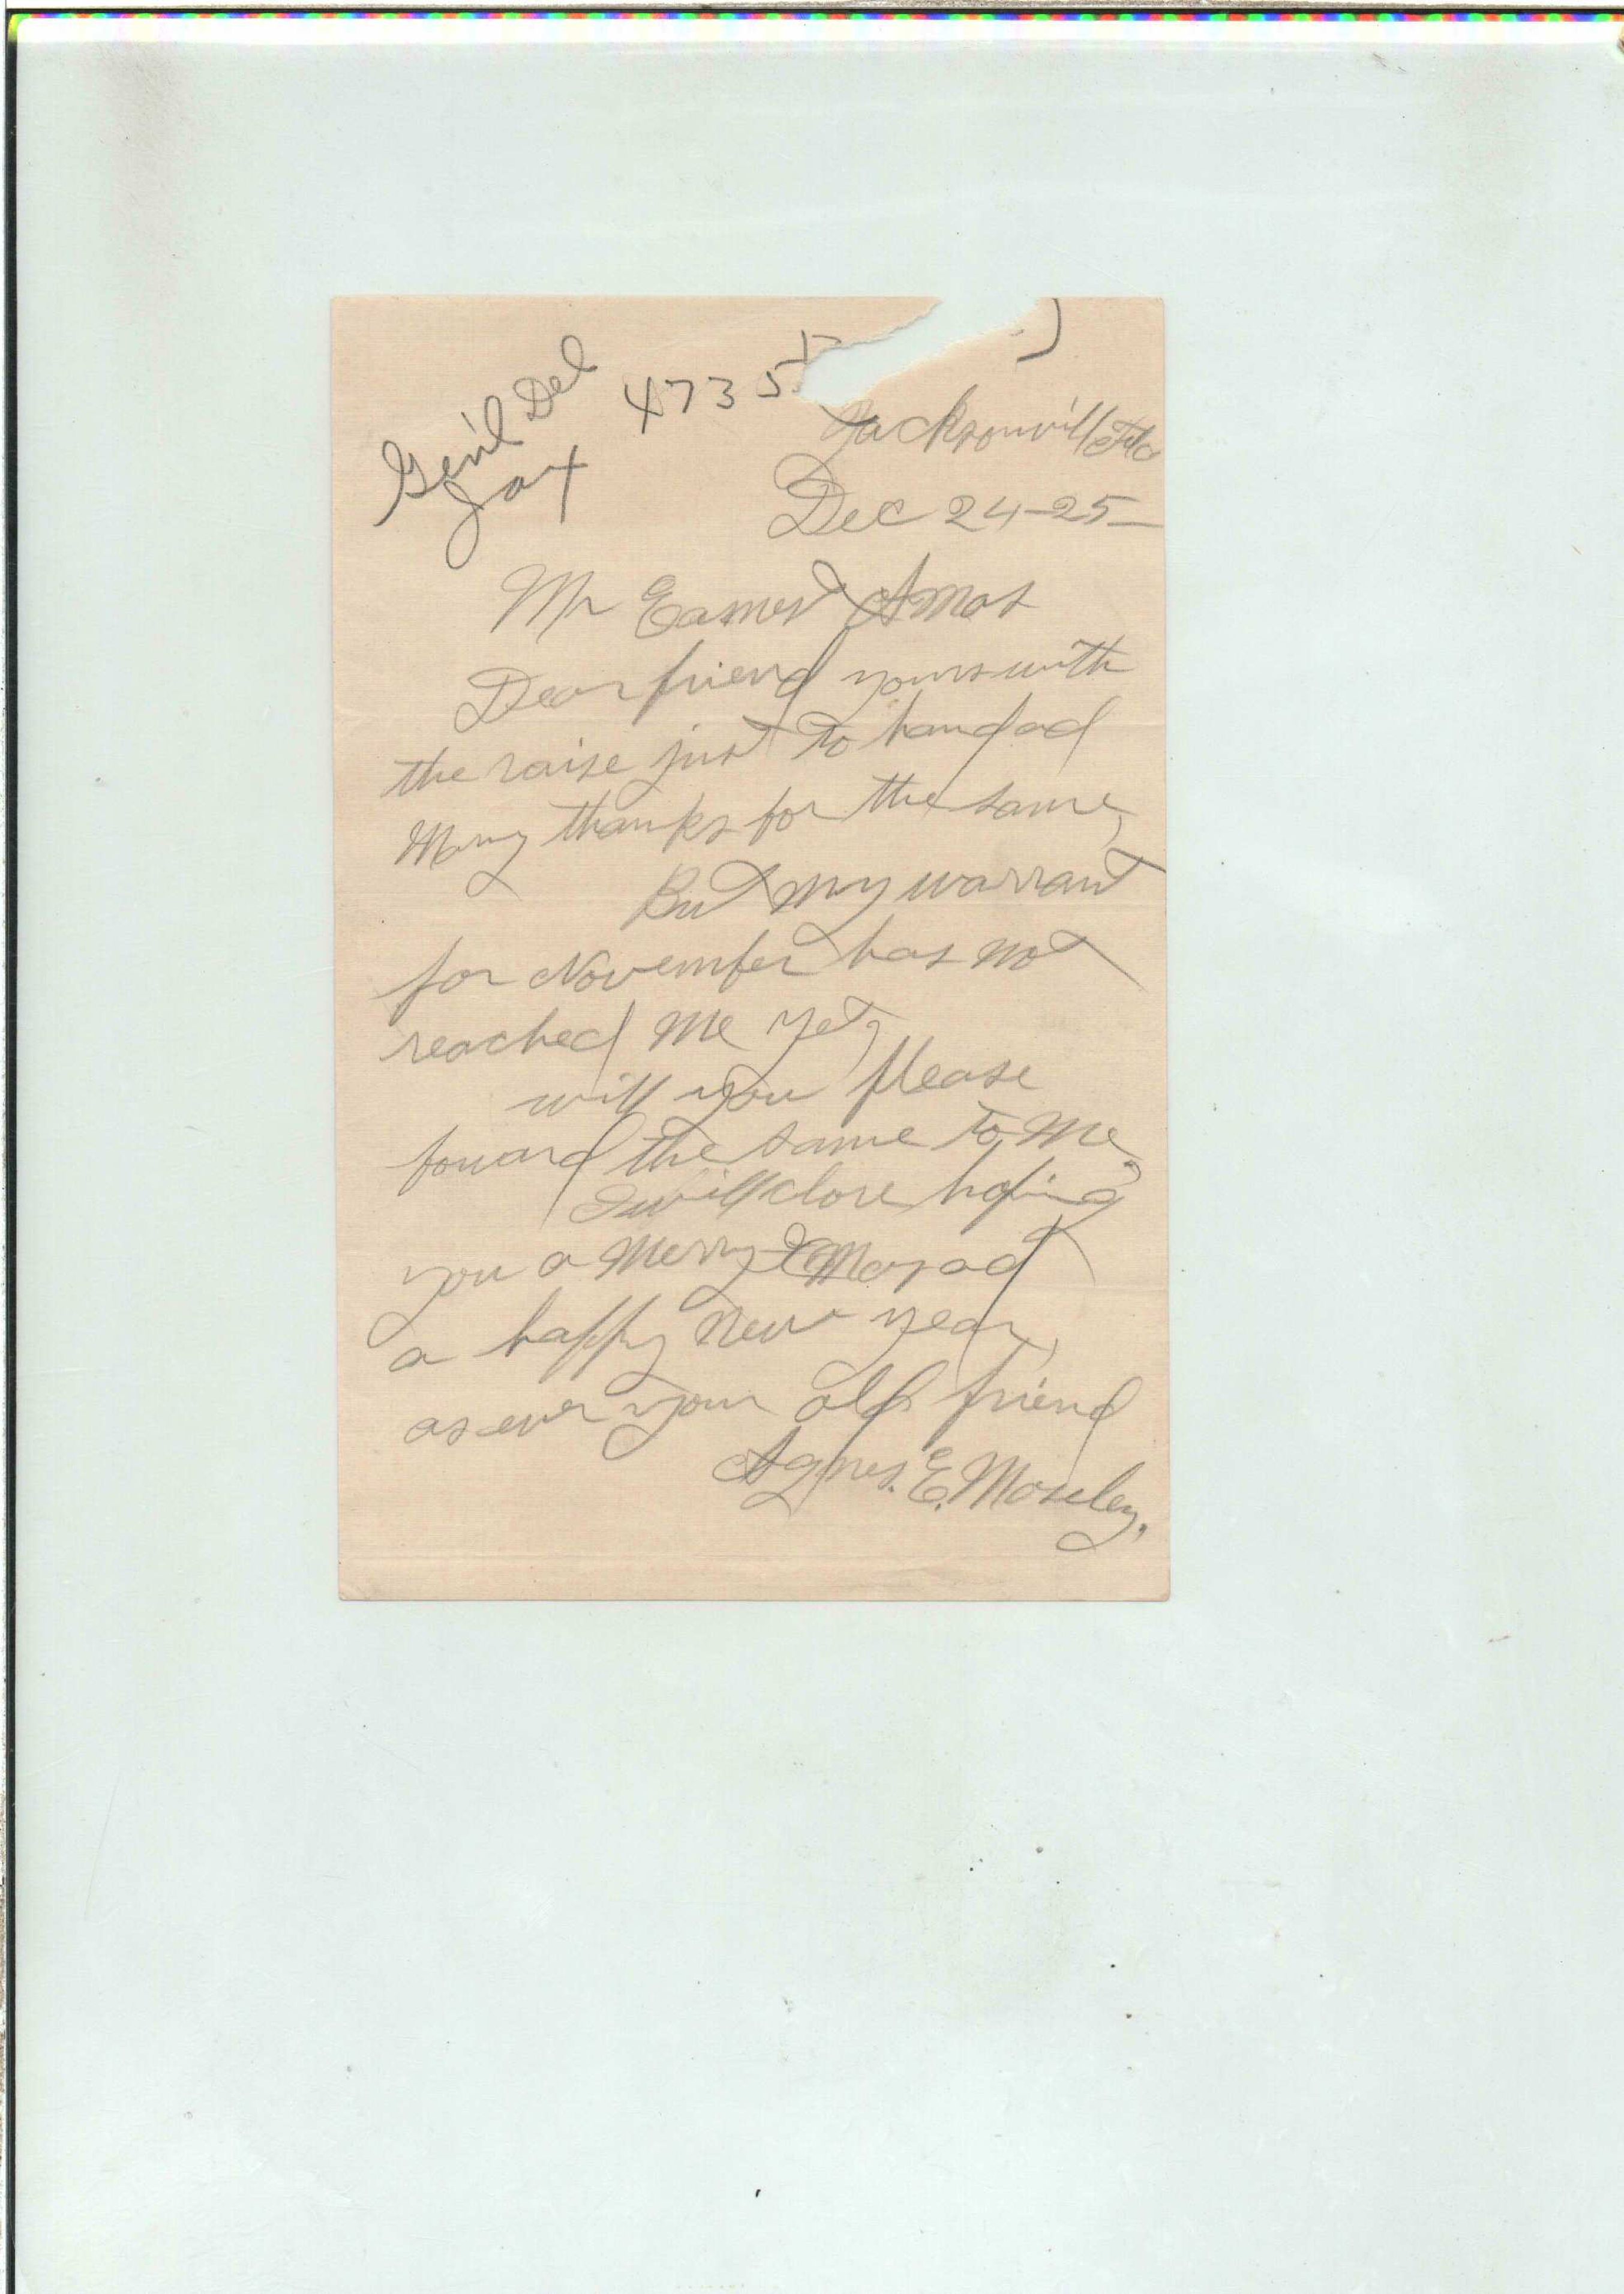 Gen'l Del
Jax
4735
Jacksonville Fla
Dec 24-25-
Mr Earnest Amos
Dear friend yours with
the raise just to hand ad
Many thanks for the same,
But my warrant
for November has not
reached me yet,
will you please
foward the same to me,
I will close hoping
you a Merry XMas ad
a happy New year,
as ever your old friend
Agnes. E. Moseley.